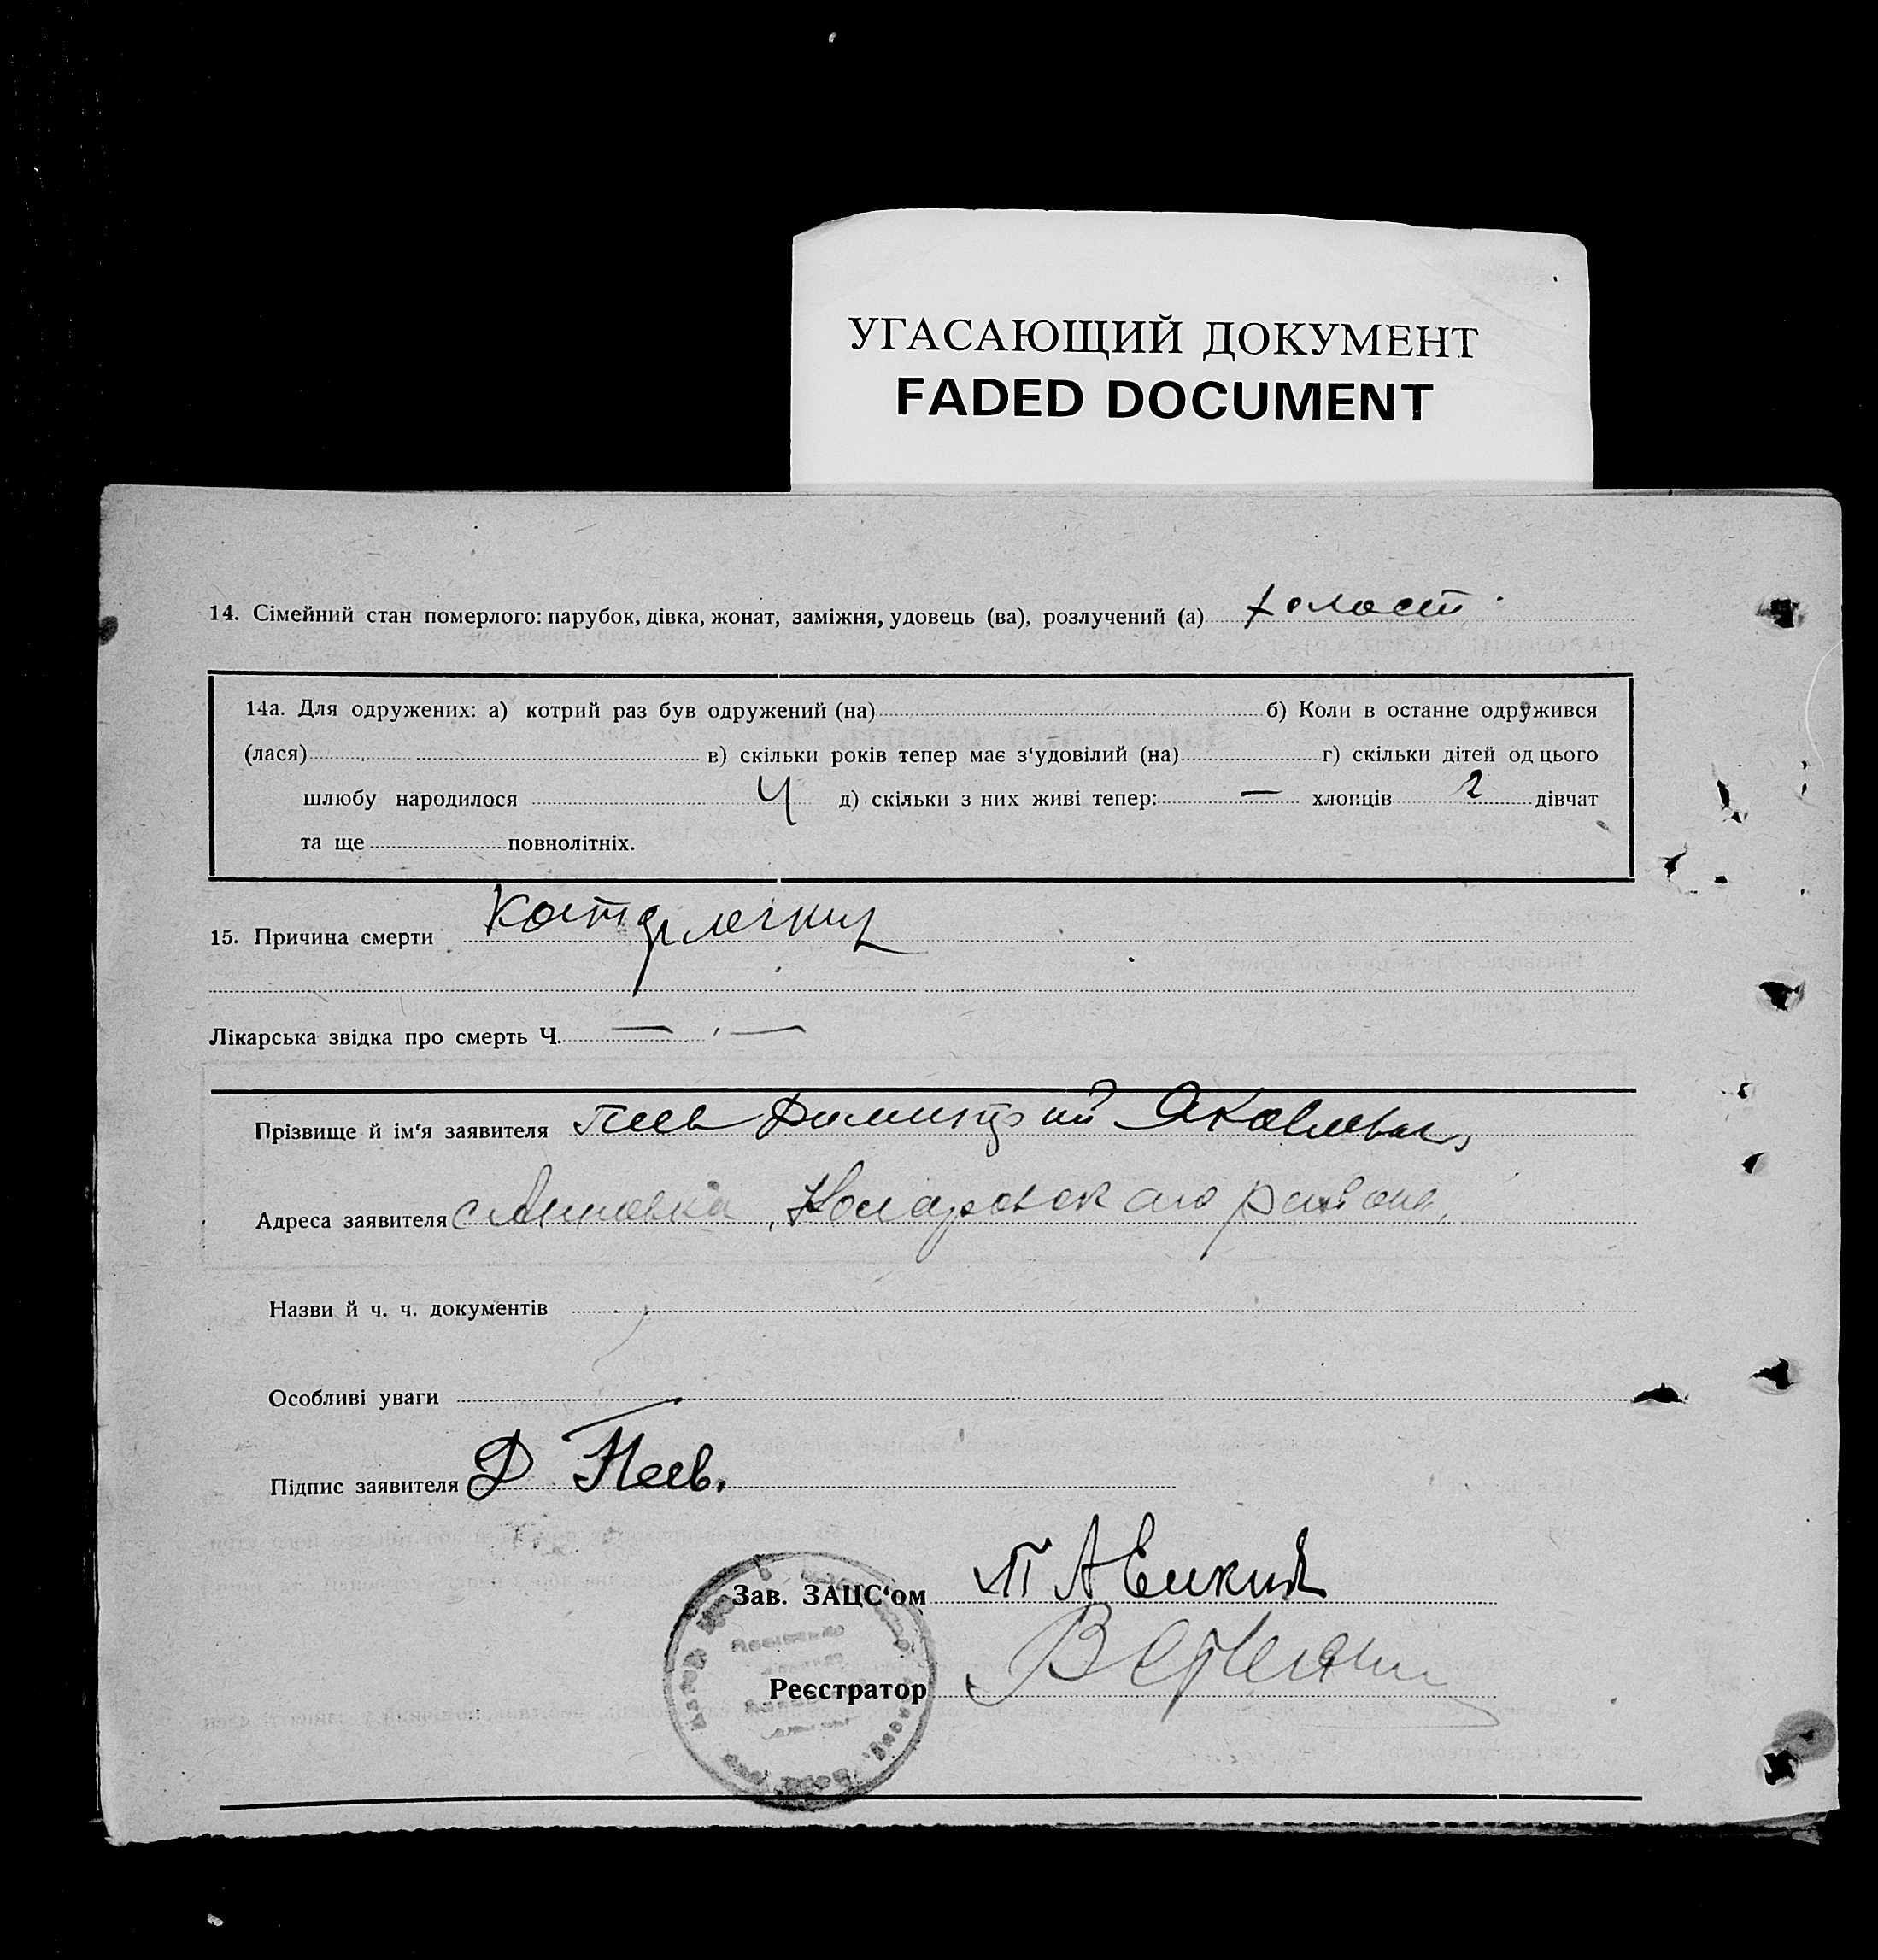 УГАСАЮЩИЙ ДОКУМЕНТ
FADED DOCUMENT
14. Сімейний стан померлого: парубок, дівка, жонат, заміжня, удовець (ва), розлучений (а) холост
14а. Для одружених: а) котрий раз був одружений (на) б) Коли в останне одружився
(лася) в) скільки років тепер має з‘удовілий (на) г) скільки дітей од цього
шлюбу народилося 4 д) скільки з них живі тепер: — хлопців 2 дівчат
та ще повнолітніх.
15. Причина смерти Катар легких
Лікарська звідка про смерть Ч. — —
Прізвище й ім‘я заявителя Пеев Димитрий Яковлевич
Адреса заявителя с района.
Назви й ч. ч. документів
Особливі уваги
Підпис заявителя Д Пеев.
Зав. ЗАЦС‘ом
Реєстратор